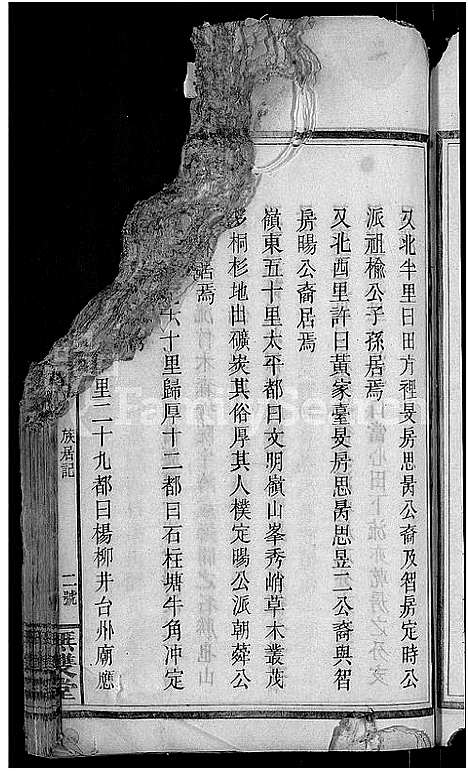 又北半里曰田方裡旻房思勗公裔及智房定時公
派祖榆公子孫居焉
又北酉里許曰黃家臺旻房思勗思昱二公裔與智
房暘公裔居焉
嶺東五十里太平都曰文明嶺山峯秀峭草木叢茂
多桐杉地出礦炭其俗厚其人樸定暘公派朝蕣公
居焉
六十里歸厚十二都曰石枉塘牛角冲定
里二十九都曰楊柳井台州廟應
族居記
二號
無雙堂
FamilySearch